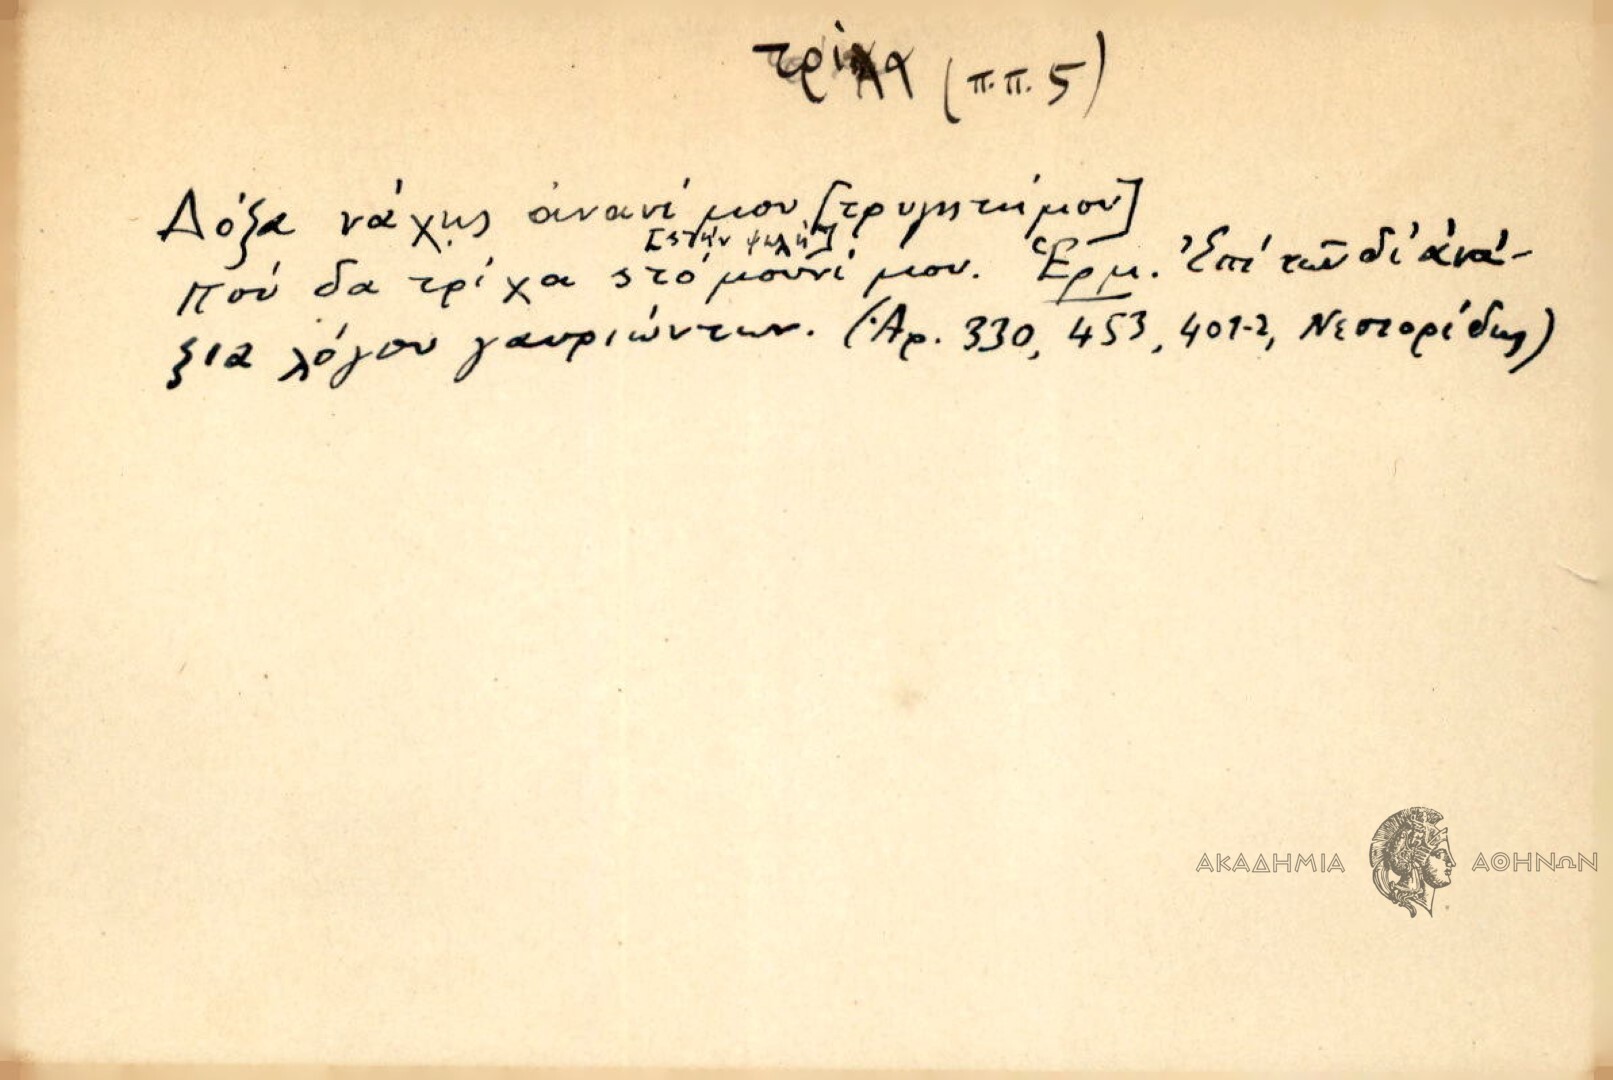 τρίχα (π.π. 5)
Δόξα νά χῃς ἀνανί μου [τρυγητή μου]
[στήν ψωλή]
Πού δα τρίχα στό μουνί μου. Ἑρμ. Ἐπί τῶν δι' ἀνά-
ξια λόγου γαυριώντων. (Ἀρ. 330, 453, 401-2, Νεστορίδης)
ΑΚΑΔΗΜΙΑ ΑΘΗΝΩΝ